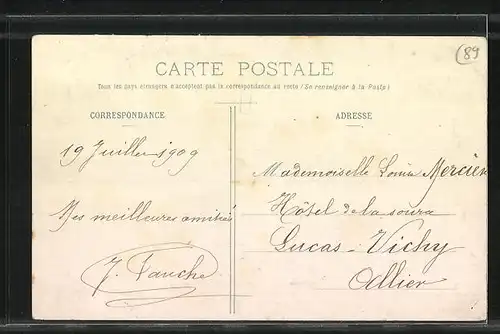 89
CARTE POSTALE
Tous les pays étrangers n'acceptent pas la correspondance au recto (Se renseigner à la Poste)
CORRESPONDANCE
ADRESSE
19 Juillet 1909
Mes meilleures amitiés
J. Fauche
Mademoiselle Louise Mercier
Hôtel de la source
Lucas - Vichy
Allier